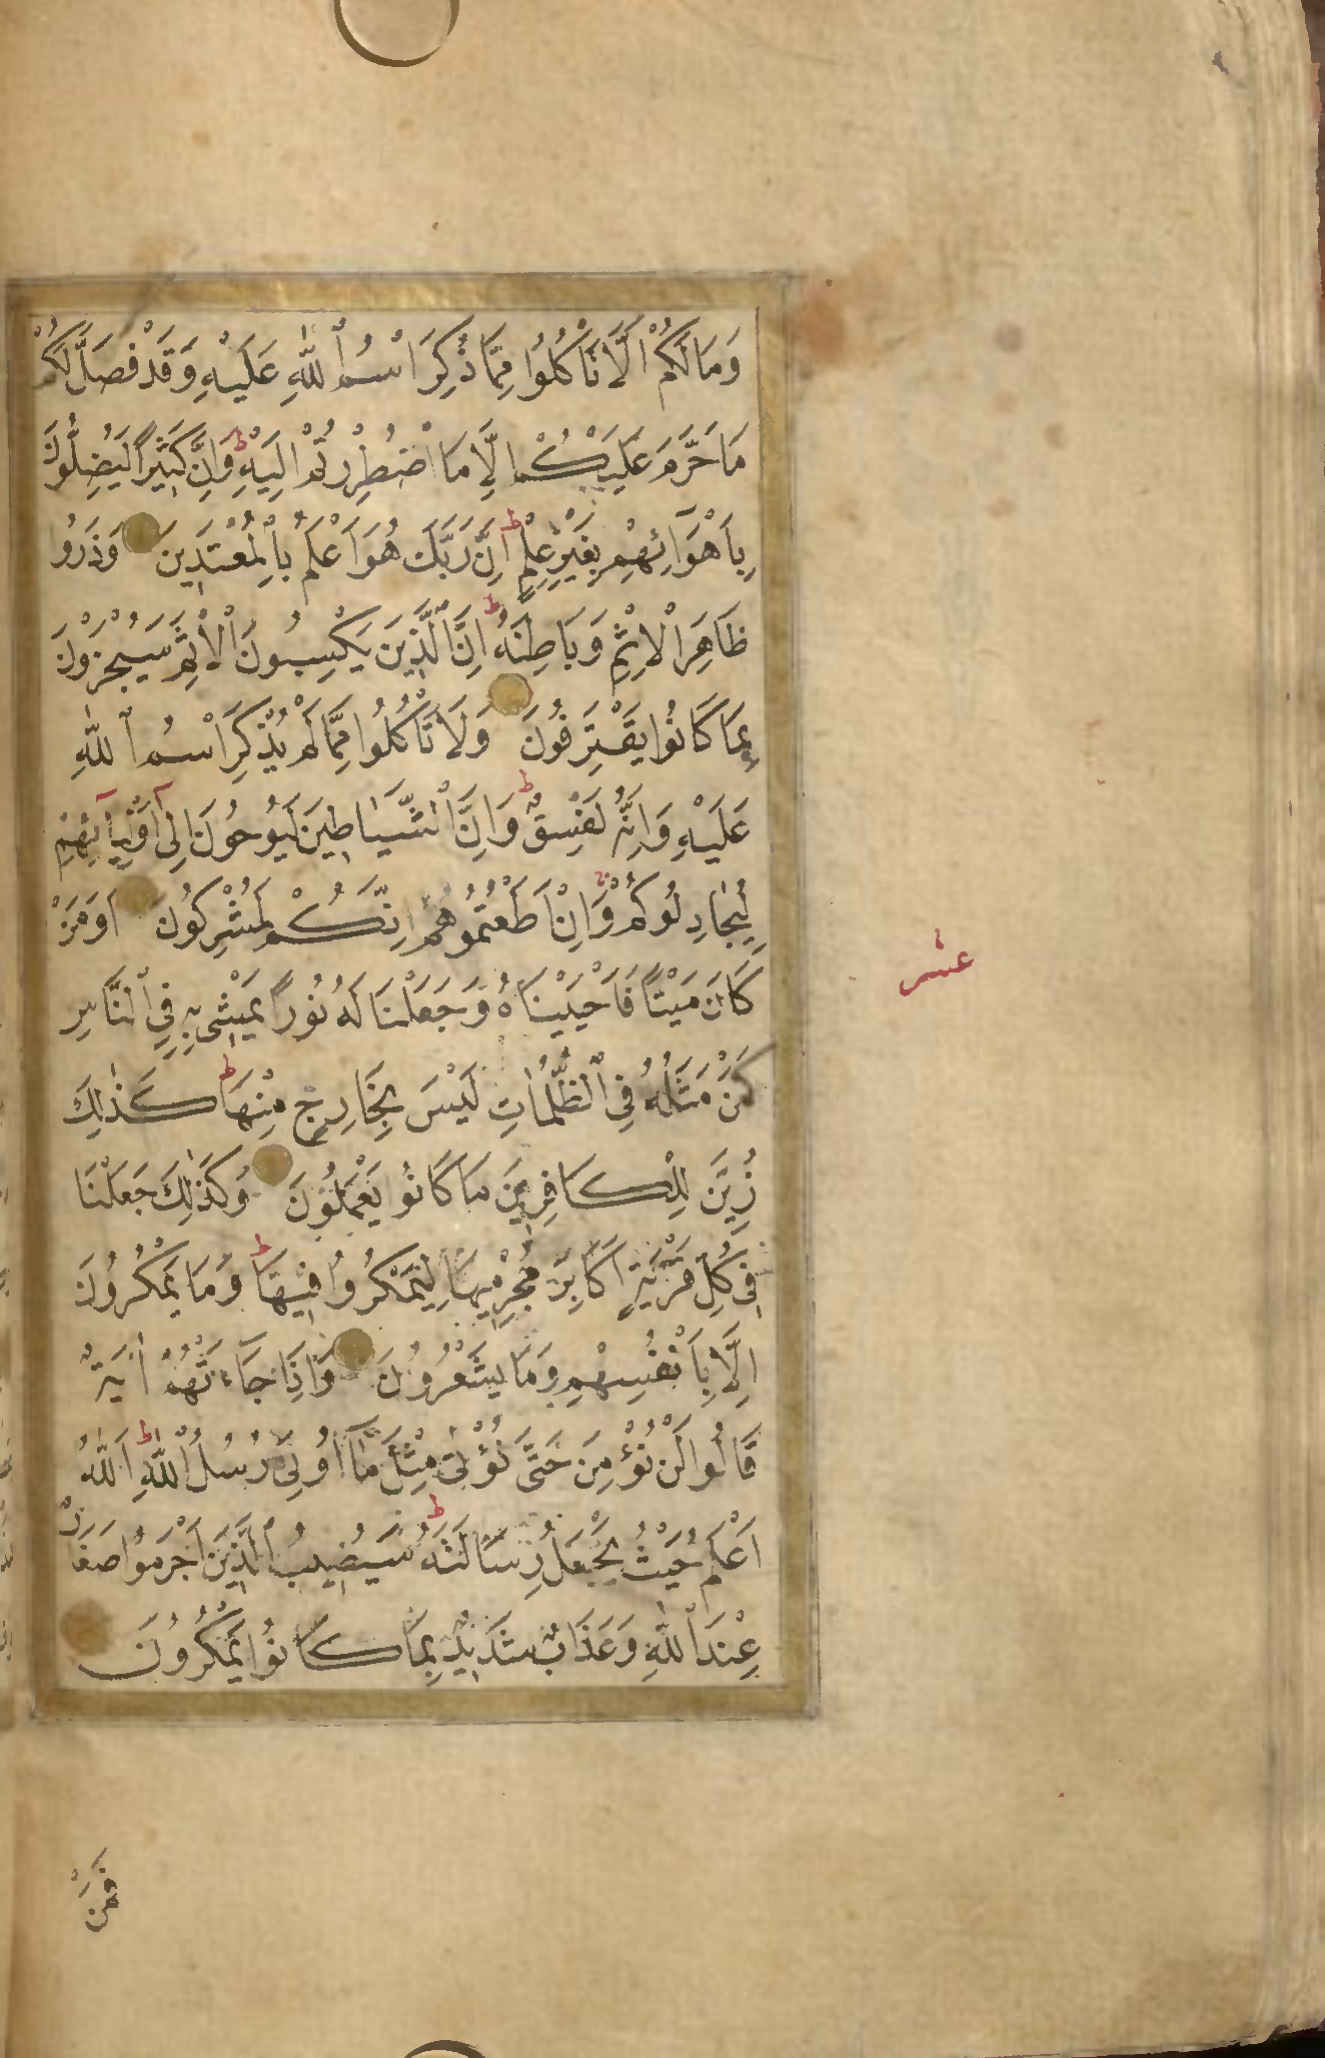 وَمَالَكُمْ اَلَّا تَأْكُلُوا مِمَّا ذُكِرَ اسْمُ ٱللّٰهِ عَلَيْهِ وَقَدْ فَصَّلَ لَكُمْ
مَا حَرَّمَ عَلَيْكُمْ اِلَّا مَا اضْطُرِرْتُمْ اِلَيْهِ ط وَاِنَّ كَثِيرًا لَيُضِلُّونَ
بِاَهْوَآئِهِمْ بِغَيْرِ عِلْمٍ ط اِنَّ رَبَّكَ هُوَ اَعْلَمُ بِٱلْمُعْتَدِينَ وَذَرُوا
ظَاهِرَ الْاِثْمِ وَبَاطِنَهُ ط اِنَّ ٱلَّذِينَ يَكْسِبُونَ ٱلْاِثْمَ سَيُجْزَوْنَ
بِمَا كَانُوا يَقْتَرِفُونَ وَلَا تَأْكُلُوا مِمَّا لَمْ يُذْكَرِ اسْمُ ٱللّٰهِ
عَلَيْهِ وَاِنَّهُ لَفِسْقٌ ط وَاِنَّ ٱلشَّيَاطِينَ لَيُوحُونَ اِلٰٓى اَوْلِيَآئِهِمْ
لِيُجَادِلُوكُمْ وَاِنْ اَطَعْتُمُوهُمْ اِنَّكُمْ لَمُشْرِكُونَ اَوَمَنْ
كَانَ مَيْتًا فَاَحْيَيْنَاهُ وَجَعَلْنَا لَهُ نُورًا يَمْشِى بِهِ فِى ٱلنَّاسِ
كَمَنْ مَثَلُهُ فِى ٱلظُّلُمَاتِ لَيْسَ بِخَارِجٍ مِنْهَا ط كَذٰلِكَ
زُيِّنَ لِلْكَافِرِينَ مَا كَانُوا يَعْمَلُونَ وَكَذٰلِكَ جَعَلْنَا
فِى كُلِّ قَرْيَةٍ اَكَابِرَ مُجْرِمِيهَا لِيَمْكُرُوا فِيهَا ط وَمَا يَمْكُرُونَ
اِلَّا بِاَنْفُسِهِمْ وَمَا يَشْعُرُونَ وَاِذَا جَآءَتْهُمْ اٰيَةٌ
قَالُوا لَنْ نُؤْمِنَ حَتّٰى نُؤْتٰى مِثْلَ مَآ اُوتِىَ رُسُلُ ٱللّٰهِ ط اَللّٰهُ
اَعْلَمُ حَيْثُ يَجْعَلُ رِسَالَتَهُ ط سَيُصِيبُ ٱلَّذِينَ اَجْرَمُوا صَغَارٌ
عِنْدَ ٱللّٰهِ وَعَذَابٌ شَدِيدٌ بِمَا كَانُوا يَمْكُرُونَ
عشر
فَمَنْ